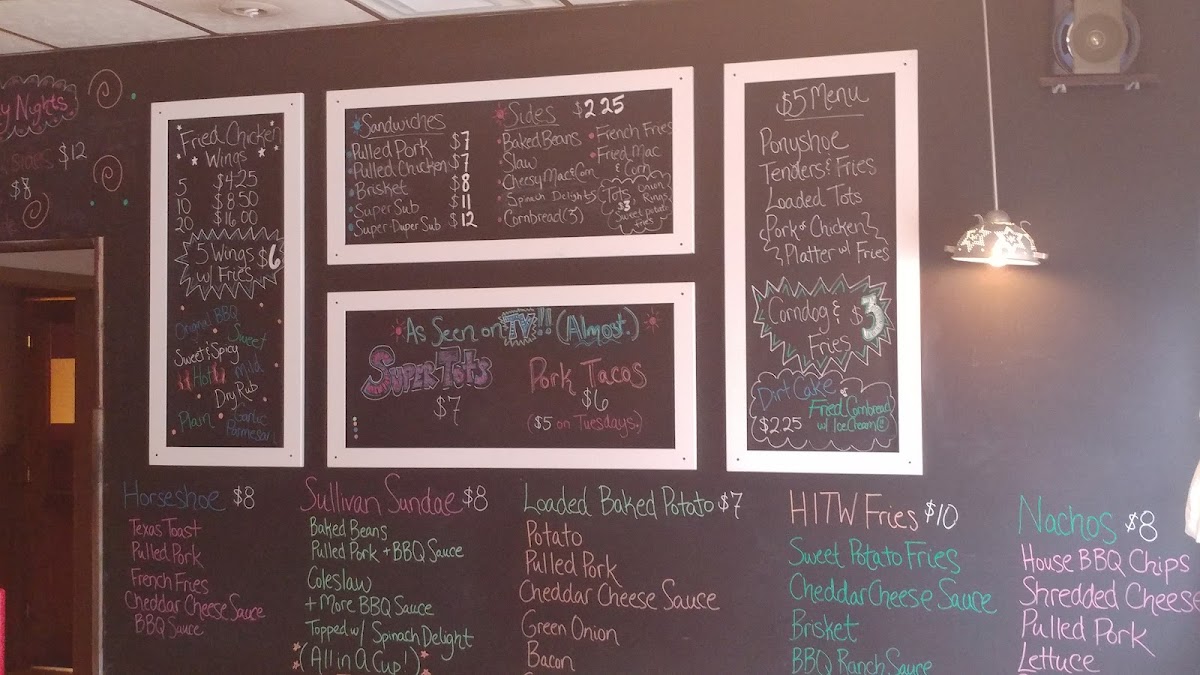 y Nights
Sides $12
$8
Fried Chicken
Wings
5 $4.25
10 $8.50
20 $16.00
5 Wings $6
w/ Fries
Original BBQ
Sweet
Sweet & Spicy
Hot
Mild
Dry Rub
Plain
Garlic
Parmesan
Sandwiches
Pulled Pork $7
Pulled Chicken $7
Brisket $8
Super Sub $11
Super-Duper Sub $12
Sides $2.25
Baked Beans
Slaw
Cheesy Mac & Corn
Spinach Delights
Cornbread (3)
French Fries
Fried Mac
& Corn
Tots
$3
Onion
Rings
Sweet potato
fries
As Seen on TV!! (Almost.)
Super Tots
$7
Pork Tacos
$6
($5 on Tuesdays.)
$5 Menu
Ponyshoe
Tenders & Fries
Loaded Tots
Pork or Chicken
Platter w/ Fries
Corndog & $3
Fries
Dirt Cake or
Fried Cornbread
$2.25 w/ Ice Cream
Horseshoe $8
Texas Toast
Pulled Pork
French Fries
Cheddar Cheese Sauce
BBQ Sauce
Sullivan Sundae $8
Baked Beans
Pulled Pork + BBQ Sauce
Coleslaw
+ More BBQ Sauce
Topped w/ Spinach Delight
(All in A Cup!)
Loaded Baked Potato $7
Potato
Pulled Pork
Cheddar Cheese Sauce
Green Onion
Bacon
HITW Fries $10
Sweet Potato Fries
Cheddar Cheese Sauce
Brisket
BBQ Ranch Sauce
Nachos $8
House BBQ Chips
Shredded Cheese
Pulled Pork
Lettuce